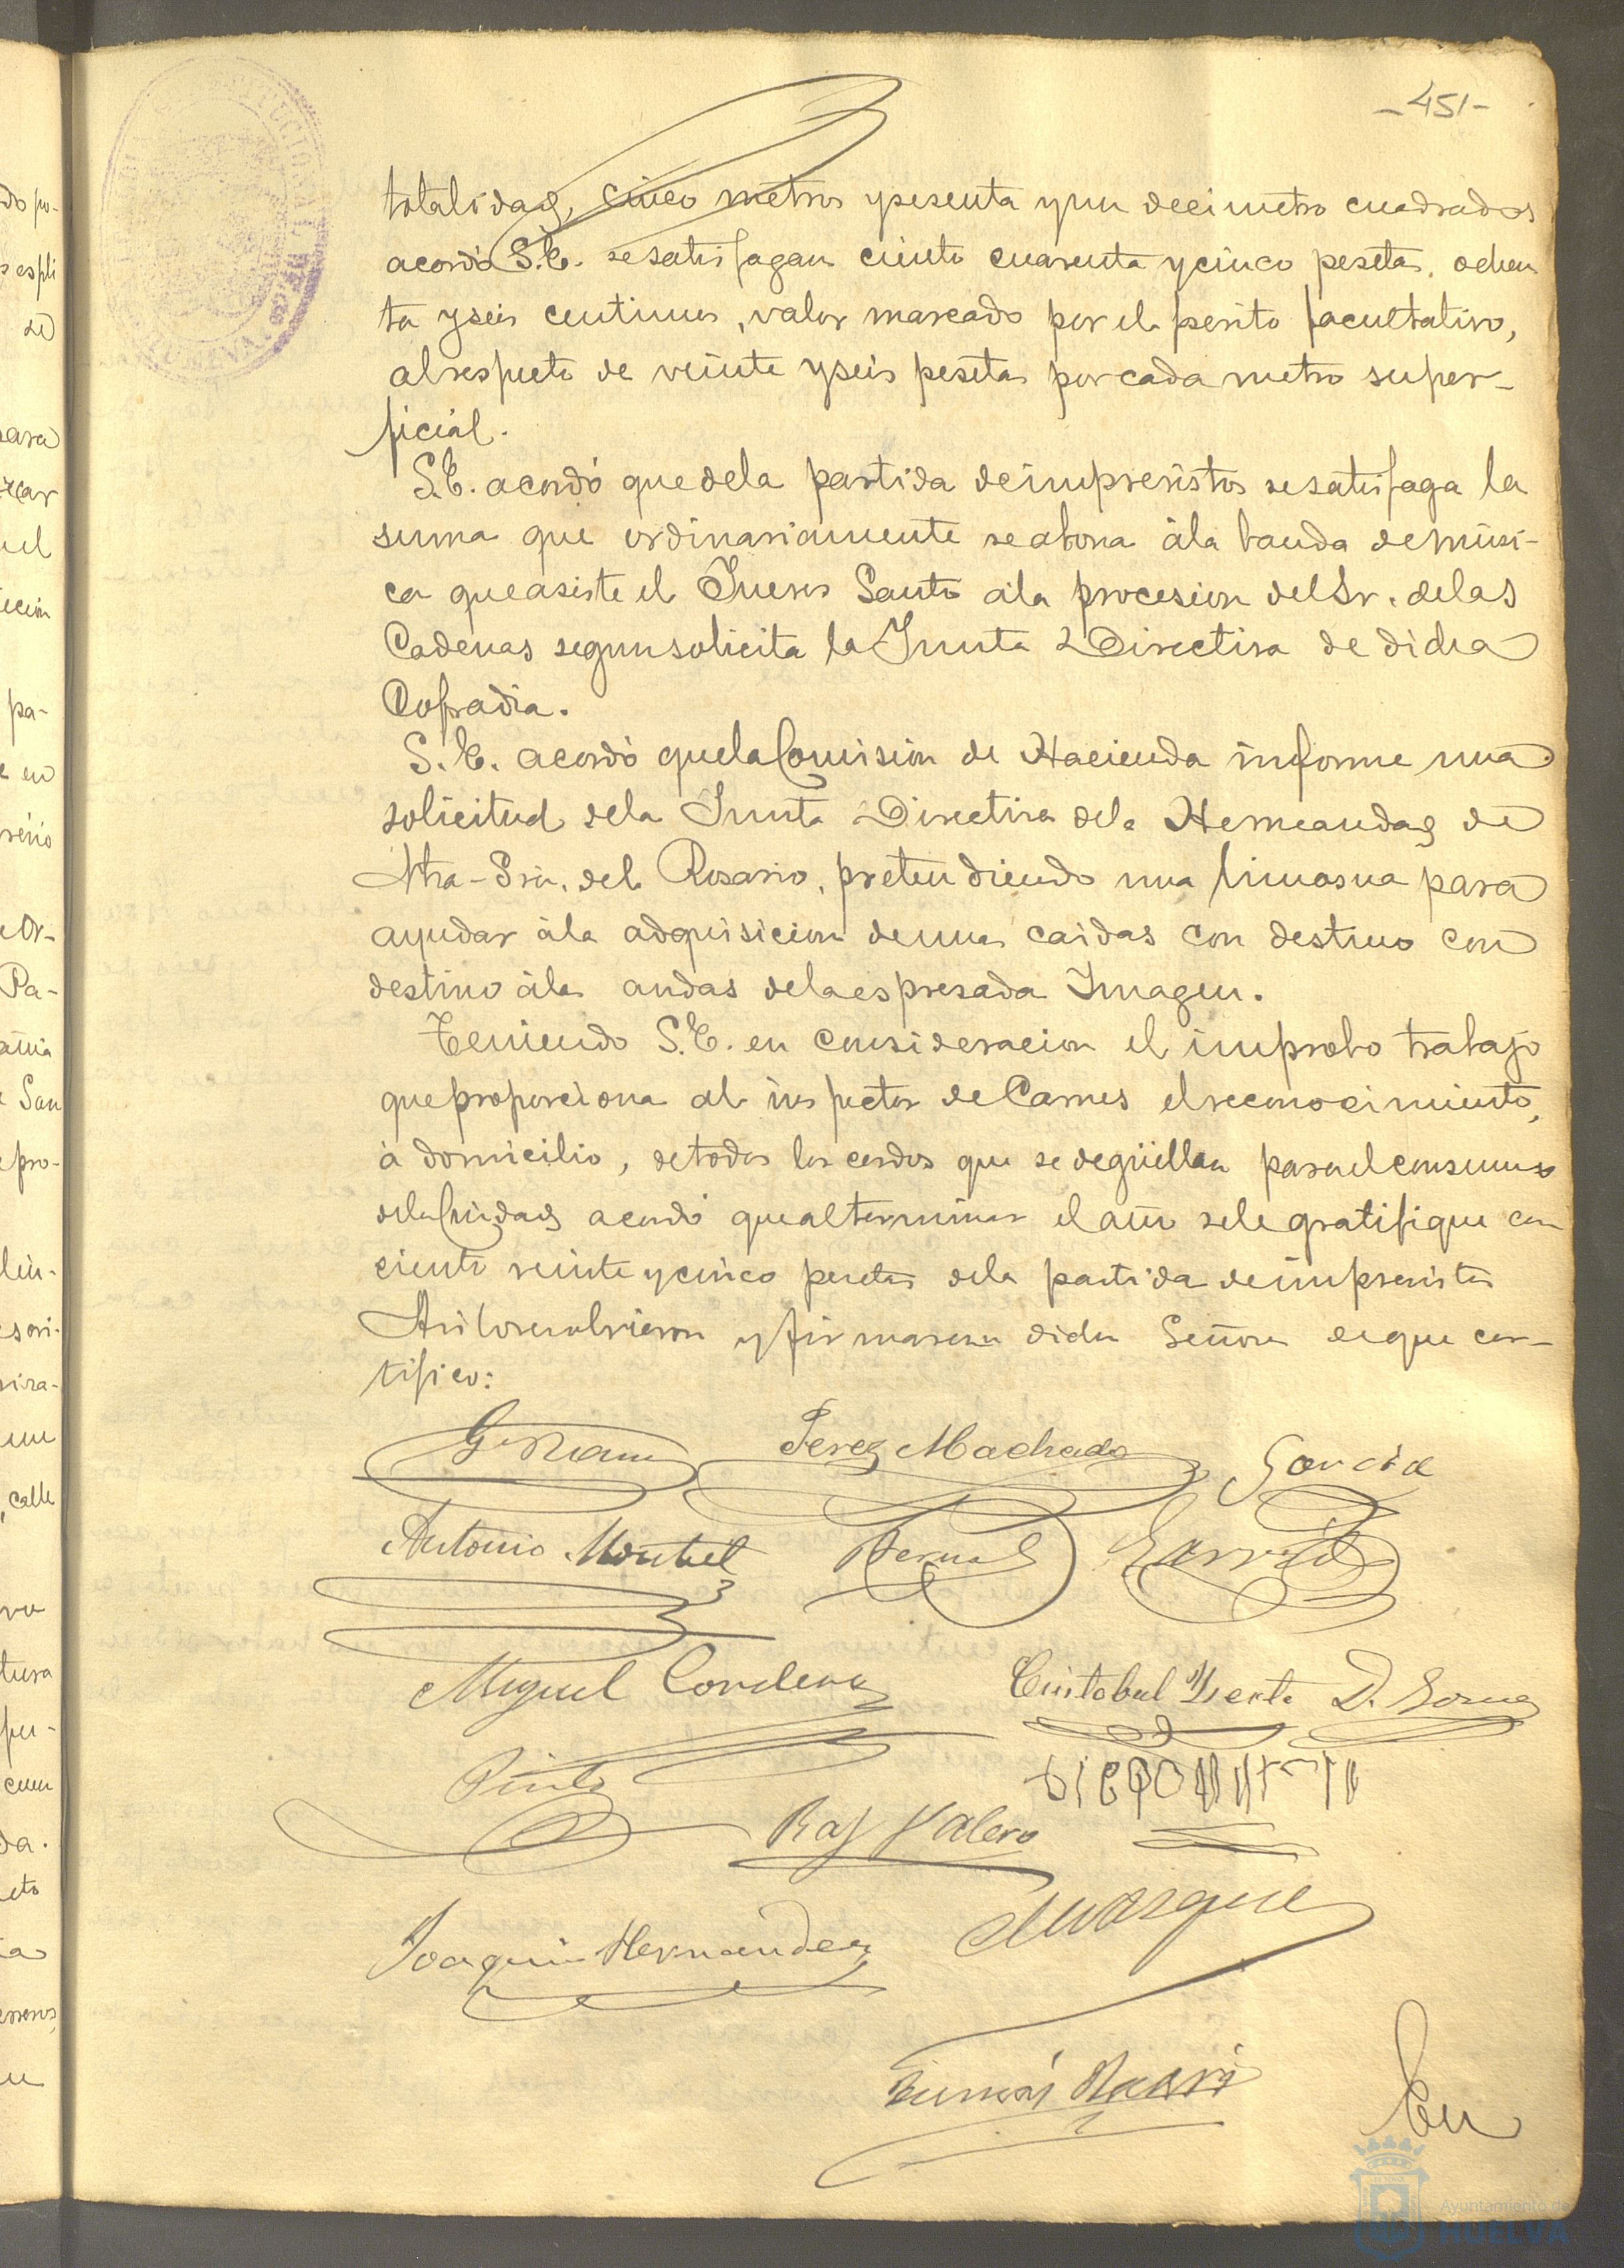 -451-
totalidad, cinco metros y sesenta y un decimetro cuadrados
acordó S.E. se satisfagan ciento cuarenta y cinco pesetas, ochen
ta y seis centimos, valor marcado por el perito facultativo,
al respecto de veinte y seis pesetas por cada metro super-
ficial.
S.E. acordó que de la partida de imprevistos se satisfaga la
suma que ordinariamente se abona á la banda de músi-
ca que asiste el Jueves Santo á la procesion del Sr. de las
Cadenas segun solicita la Junta Directiva de dicha
Cofradia.
S.E. acordó que la Comision de Hacienda informe una
solicitud de la Junta Directiva de la Hermandad de
Ntra. Sra. del Rosario, pretendiendo una limosna para
ayudar á la adquisicion de unas caidas con destino con
destino á las andas de la espresada Imagen.
Teniendo S.E. en consideracion el improbo trabajo
que proporciona al inspector de Carnes el reconocimiento,
á domicilio, de todos los cerdos que se degüellan para el consumo
de la Ciudad acordó que al terminar el año se le gratifique con
ciento veinte y cinco pesetas de la partida de imprevistos
Asi lo resolvieron y firmaron dichos Señores de que cer-
tifico:
Perez Machado
Garcia
Antonio Montiel
Bernal
Garrido
Miguel Cordero
D. Gomez
Pinto
Raf Valero
Joaquin Hernandez
Vazquez
En
Ayuntamiento de
HUELVA